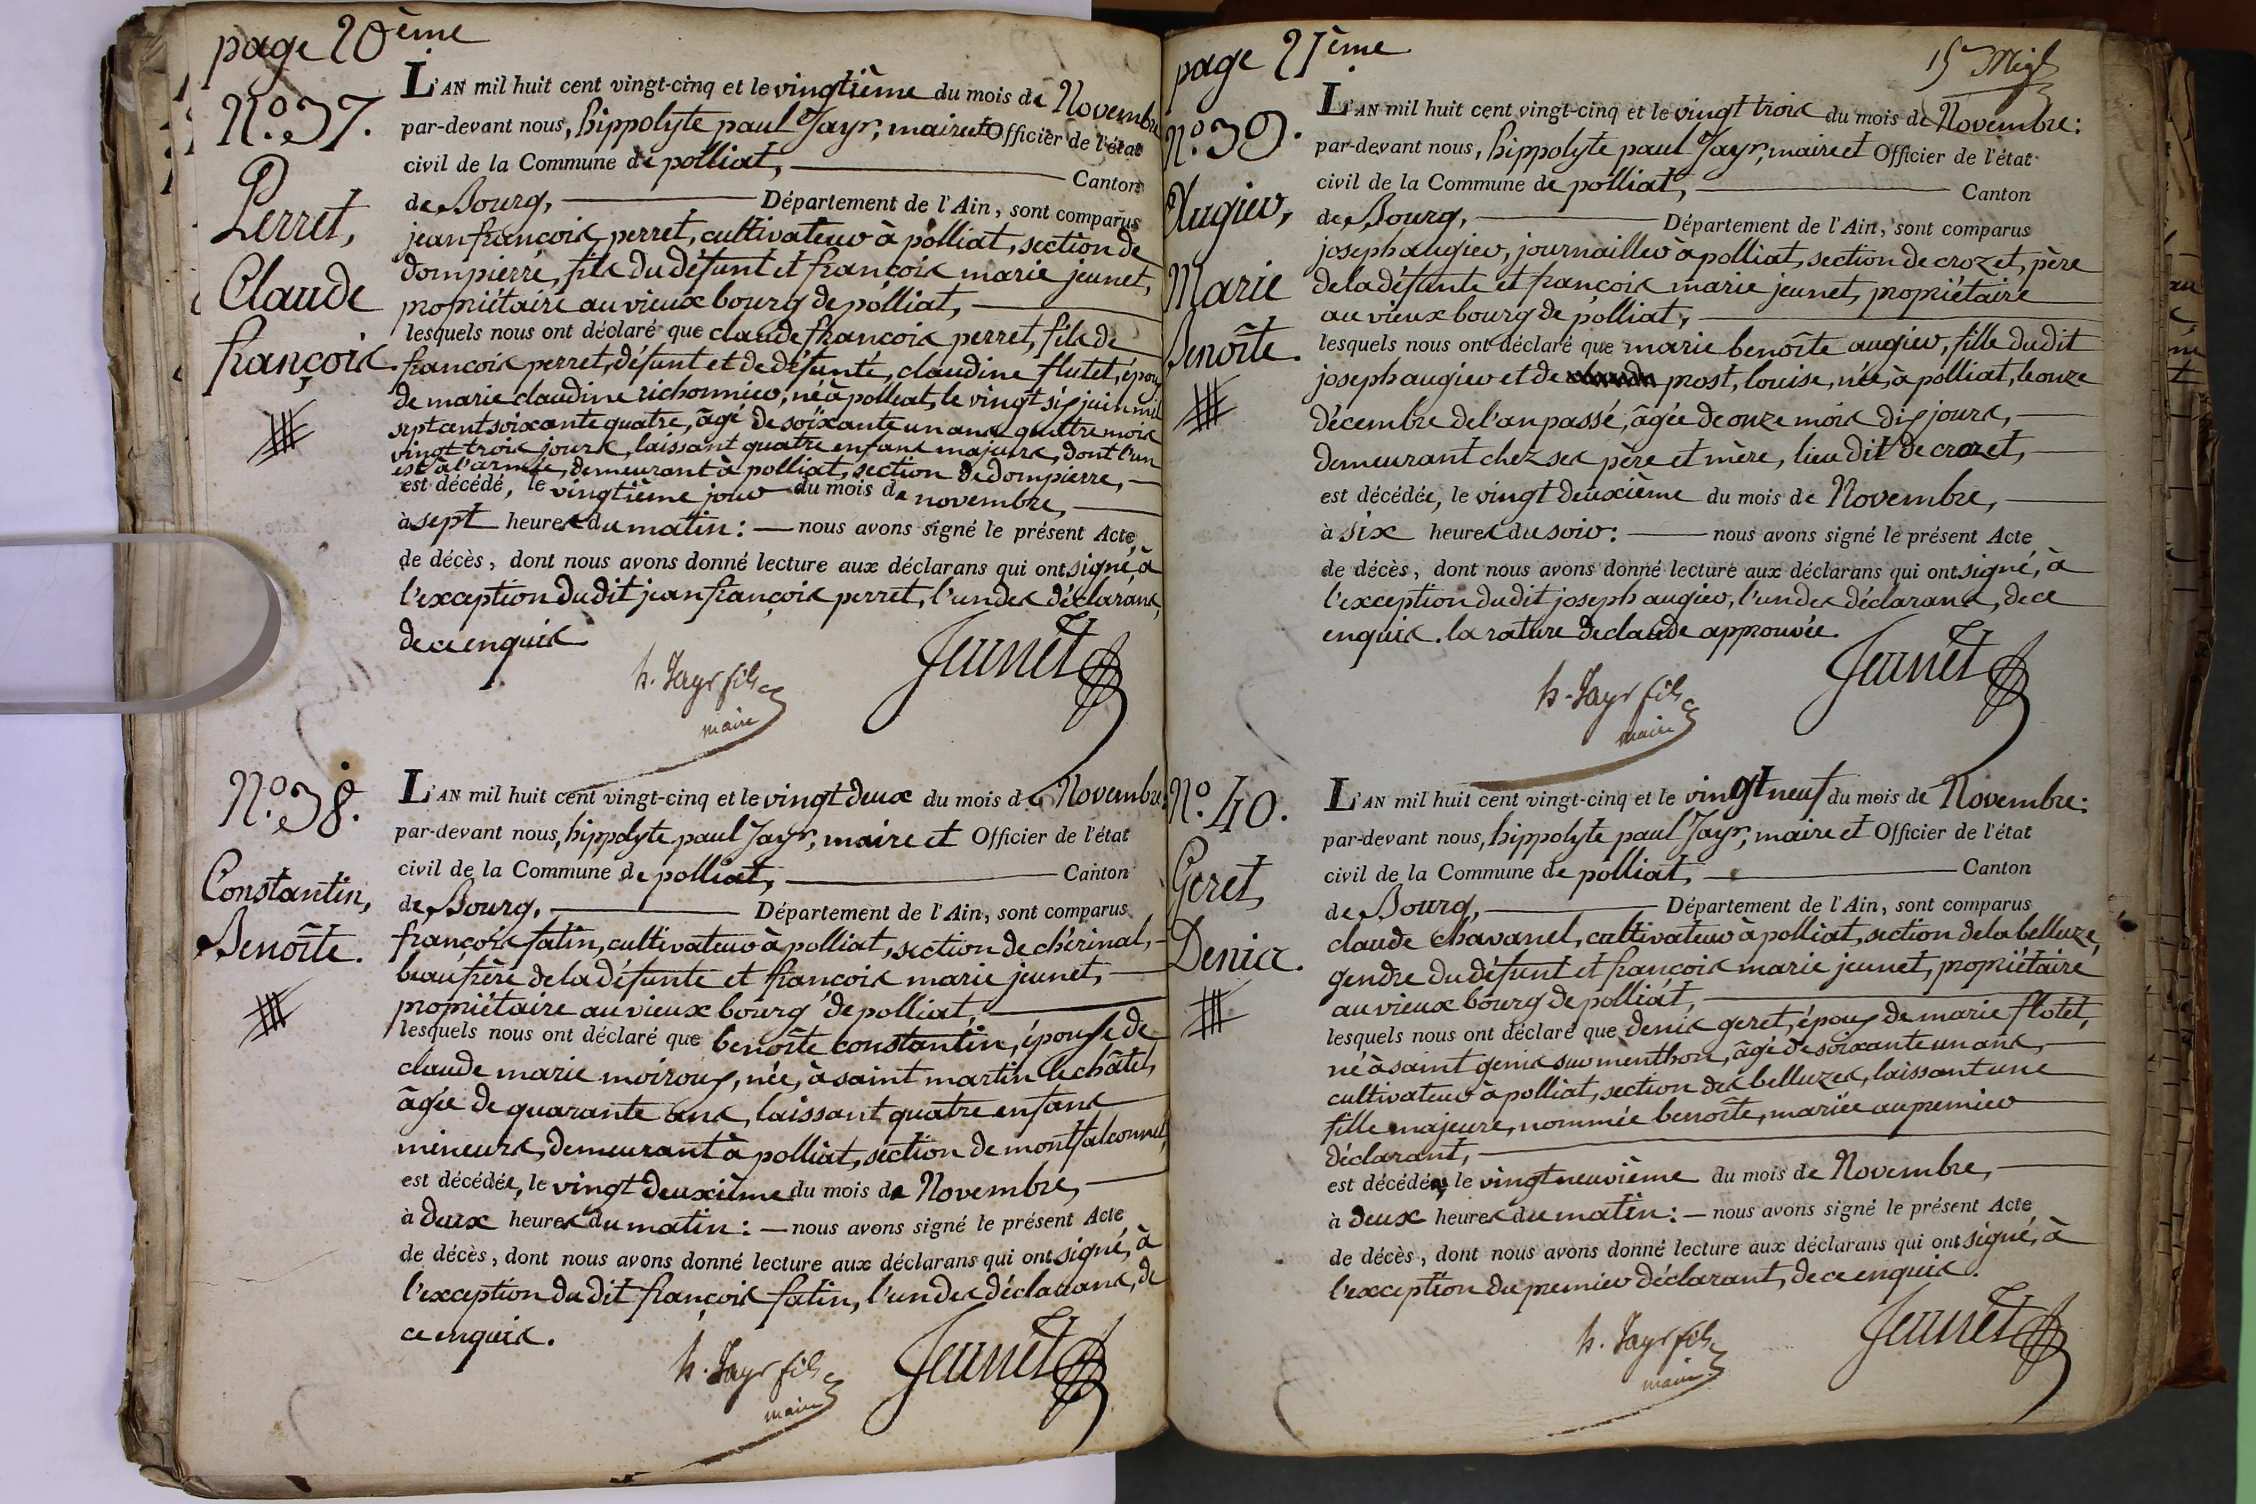 page 20ème
N.o 37.
Perret,
Claude
françois.
L'AN mil huit cent vingt-cinq et le vingtième du mois de Novembre
par-devant nous, hippolyte paul Jayr, maire et Officier de l'état
civil de la Commune de polliat, Canton
de Bourg, Département de l'Ain, sont comparus
jean françois perret, cultivateur à polliat, section de
dompierre, fils du défunt et françois marie jeunet,
propriétaire au vieux bourg de polliat,
lesquels nous ont déclaré que claude françois perret, fils de
françois perret, défunt et de défunte, claudine flutet, époux
de marie claudine richonnier, né à polliat, le vingt six juin mil
sept cent soixante quatre, âgé de soixante un ans quatre mois
vingt trois jours, laissant quatre enfans majeurs, dont l'un
est à l'armée, demeurant à polliat, section de dompierre,
est décédé, le vingtième jour du mois de novembre,
à sept heures du matin: nous avons signé le présent Acte
de décès, dont nous avons donné lecture aux déclarans qui ont signé, à
l'exception du dit jean françois perret, l'un des déclarans,
de ce enquis
h. Jayr fils
maire
Jeunet
N.o 38.
Constantin,
Benoîte.
L'AN mil huit cent vingt-cinq et le vingt deux du mois de Novembre:
par-devant nous, hippolyte paul Jayr, maire et Officier de l'état
civil de la Commune de polliat, Canton
de Bourg, Département de l'Ain, sont comparus
françois fatin, cultivateur à polliat, section de chérinal,
beaufrère de la défunte et françois marie jeunet,
propriétaire au vieux bourg de polliat,
lesquels nous ont déclaré que benoîte constantin, épouse de
claude marie moiroux, née, à saint martin le châtel,
âgée de quarante ans, laissant quatre enfans
mineurs, demeurant à polliat, section de montfalconnet,
est décédée, le vingt deuxième du mois de Novembre,
à deux heures du matin: nous avons signé le présent Acte
de décès, dont nous avons donné lecture aux déclarans qui ont signé, à
l'exception du dit françois fatin, l'un des déclarans, de
ce enquis.
h. Jayr fils
maire
Jeunet
page 21ème
N.o 39.
Augier,
Marie
Benoîte.
L'AN mil huit cent vingt-cinq et le vingt trois du mois de Novembre:
par-devant nous, hippolyte paul Jayr, maire et Officier de l'état
civil de la Commune de polliat, Canton
de Bourg, Département de l'Ain, sont comparus
joseph augier, journaillier à polliat, section de crozet, père
de la défunte et françois marie jeunet, propriétaire
au vieux bourg de polliat,
lesquels nous ont déclaré que marie benoîte augier, fille du dit
joseph augier et de prost, louise, née, à polliat, le onze
décembre de l'an passé, âgée de onze mois dix jours,
demeurant chez ses père et mère, lieu dit de crozet,
est décédée, le vingt deuxième du mois de Novembre,
à six heures du soir: nous avons signé le présent Acte
de décès, dont nous avons donné lecture aux déclarans qui ont signé, à
l'exception du dit joseph augier, l'un des déclarans, de ce
enquis. la rature de claude approuvée.
h. Jayr fils
maire
Jeunet
N.o 40.
Geret,
Denis.
L'AN mil huit cent vingt-cinq et le vingt neuf du mois de Novembre:
par-devant nous, hippolyte paul Jayr, maire et Officier de l'état
civil de la Commune de polliat, Canton
de Bourg, Département de l'Ain, sont comparus
claude chavanel, cultivateur à polliat, section de la belluze,
gendre du défunt et françois marie jeunet, propriétaire
au vieux bourg de polliat,
lesquels nous ont déclaré que denis geret, époux de marie flotet,
né à saint genis sur menthon, âgé de soixante un ans,
cultivateur à polliat, section des belluzes, laissant une
fille majeure, nommée benoîte, mariée au premier
déclarant,
est décédé, le vingt neuvième du mois de Novembre,
à deux heures du matin: nous avons signé le présent Acte
de décès, dont nous avons donné lecture aux déclarans qui ont signé, à
l'exception du premier déclarant, de ce enquis.
h. Jayr fils
maire
Jeunet